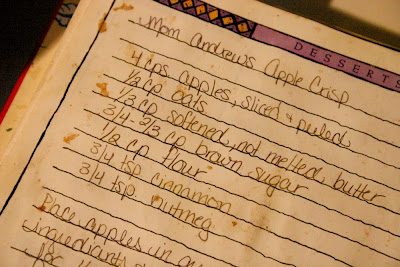 DESSERTS
Mom Andrews Apple Crisp
4 cps apples, sliced & peeled
1/2 cp oats
1/3 cp softened, not melted, butter
3/4-2/3 cp brown sugar
1/2 cp flour
3/4 tsp cinnamon
3/4 tsp nutmeg
Place apples in
ingredients
for